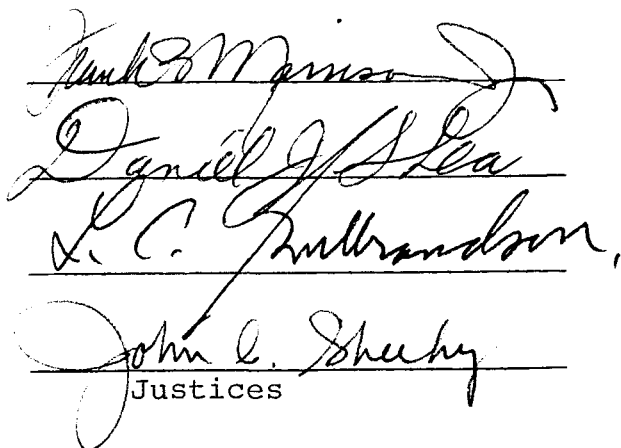 Frank B Morrison Jr
Daniel J. Shea
L. C. Gulbrandson,
John C. Sheehy
Justices